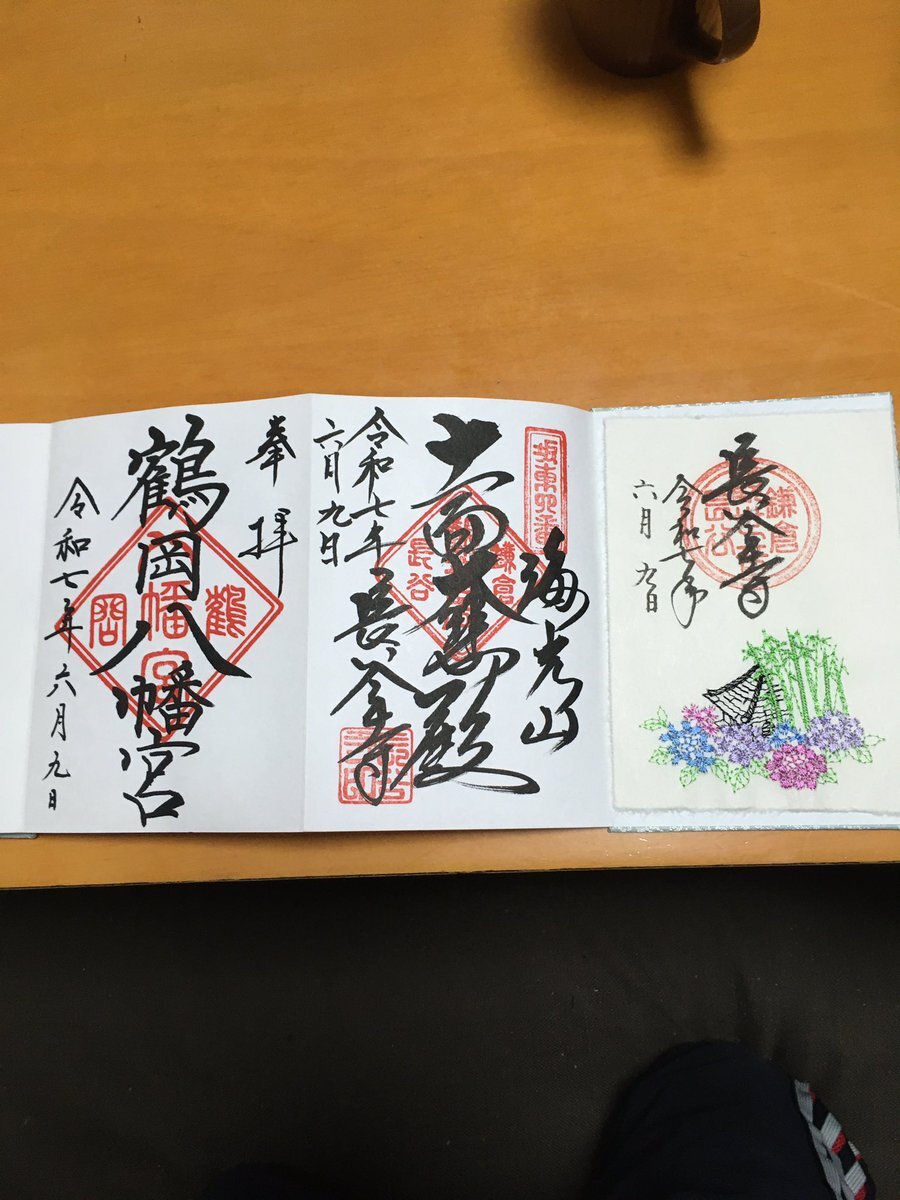 長谷寺
鎌倉
長谷
令和七年
六月九日
坂東四番
海光山
十一面大悲殿
鎌倉
長谷
長谷寺
令和七年
六月九日
奉拝
鶴岡八幡宮
鶴
幡宮
岡
令和七年六月九日